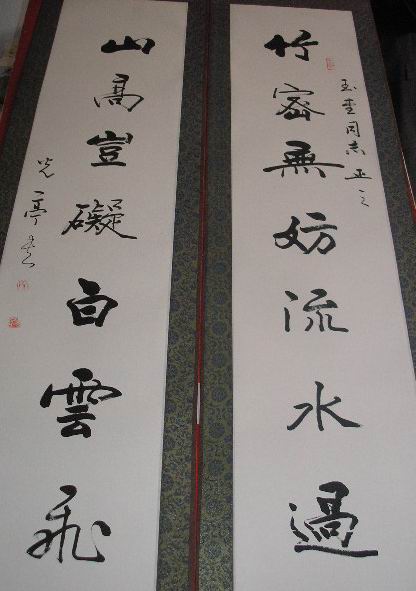 竹密無妨流水過
玉圭同志正之
山高豈礙白雲飛
光亭書